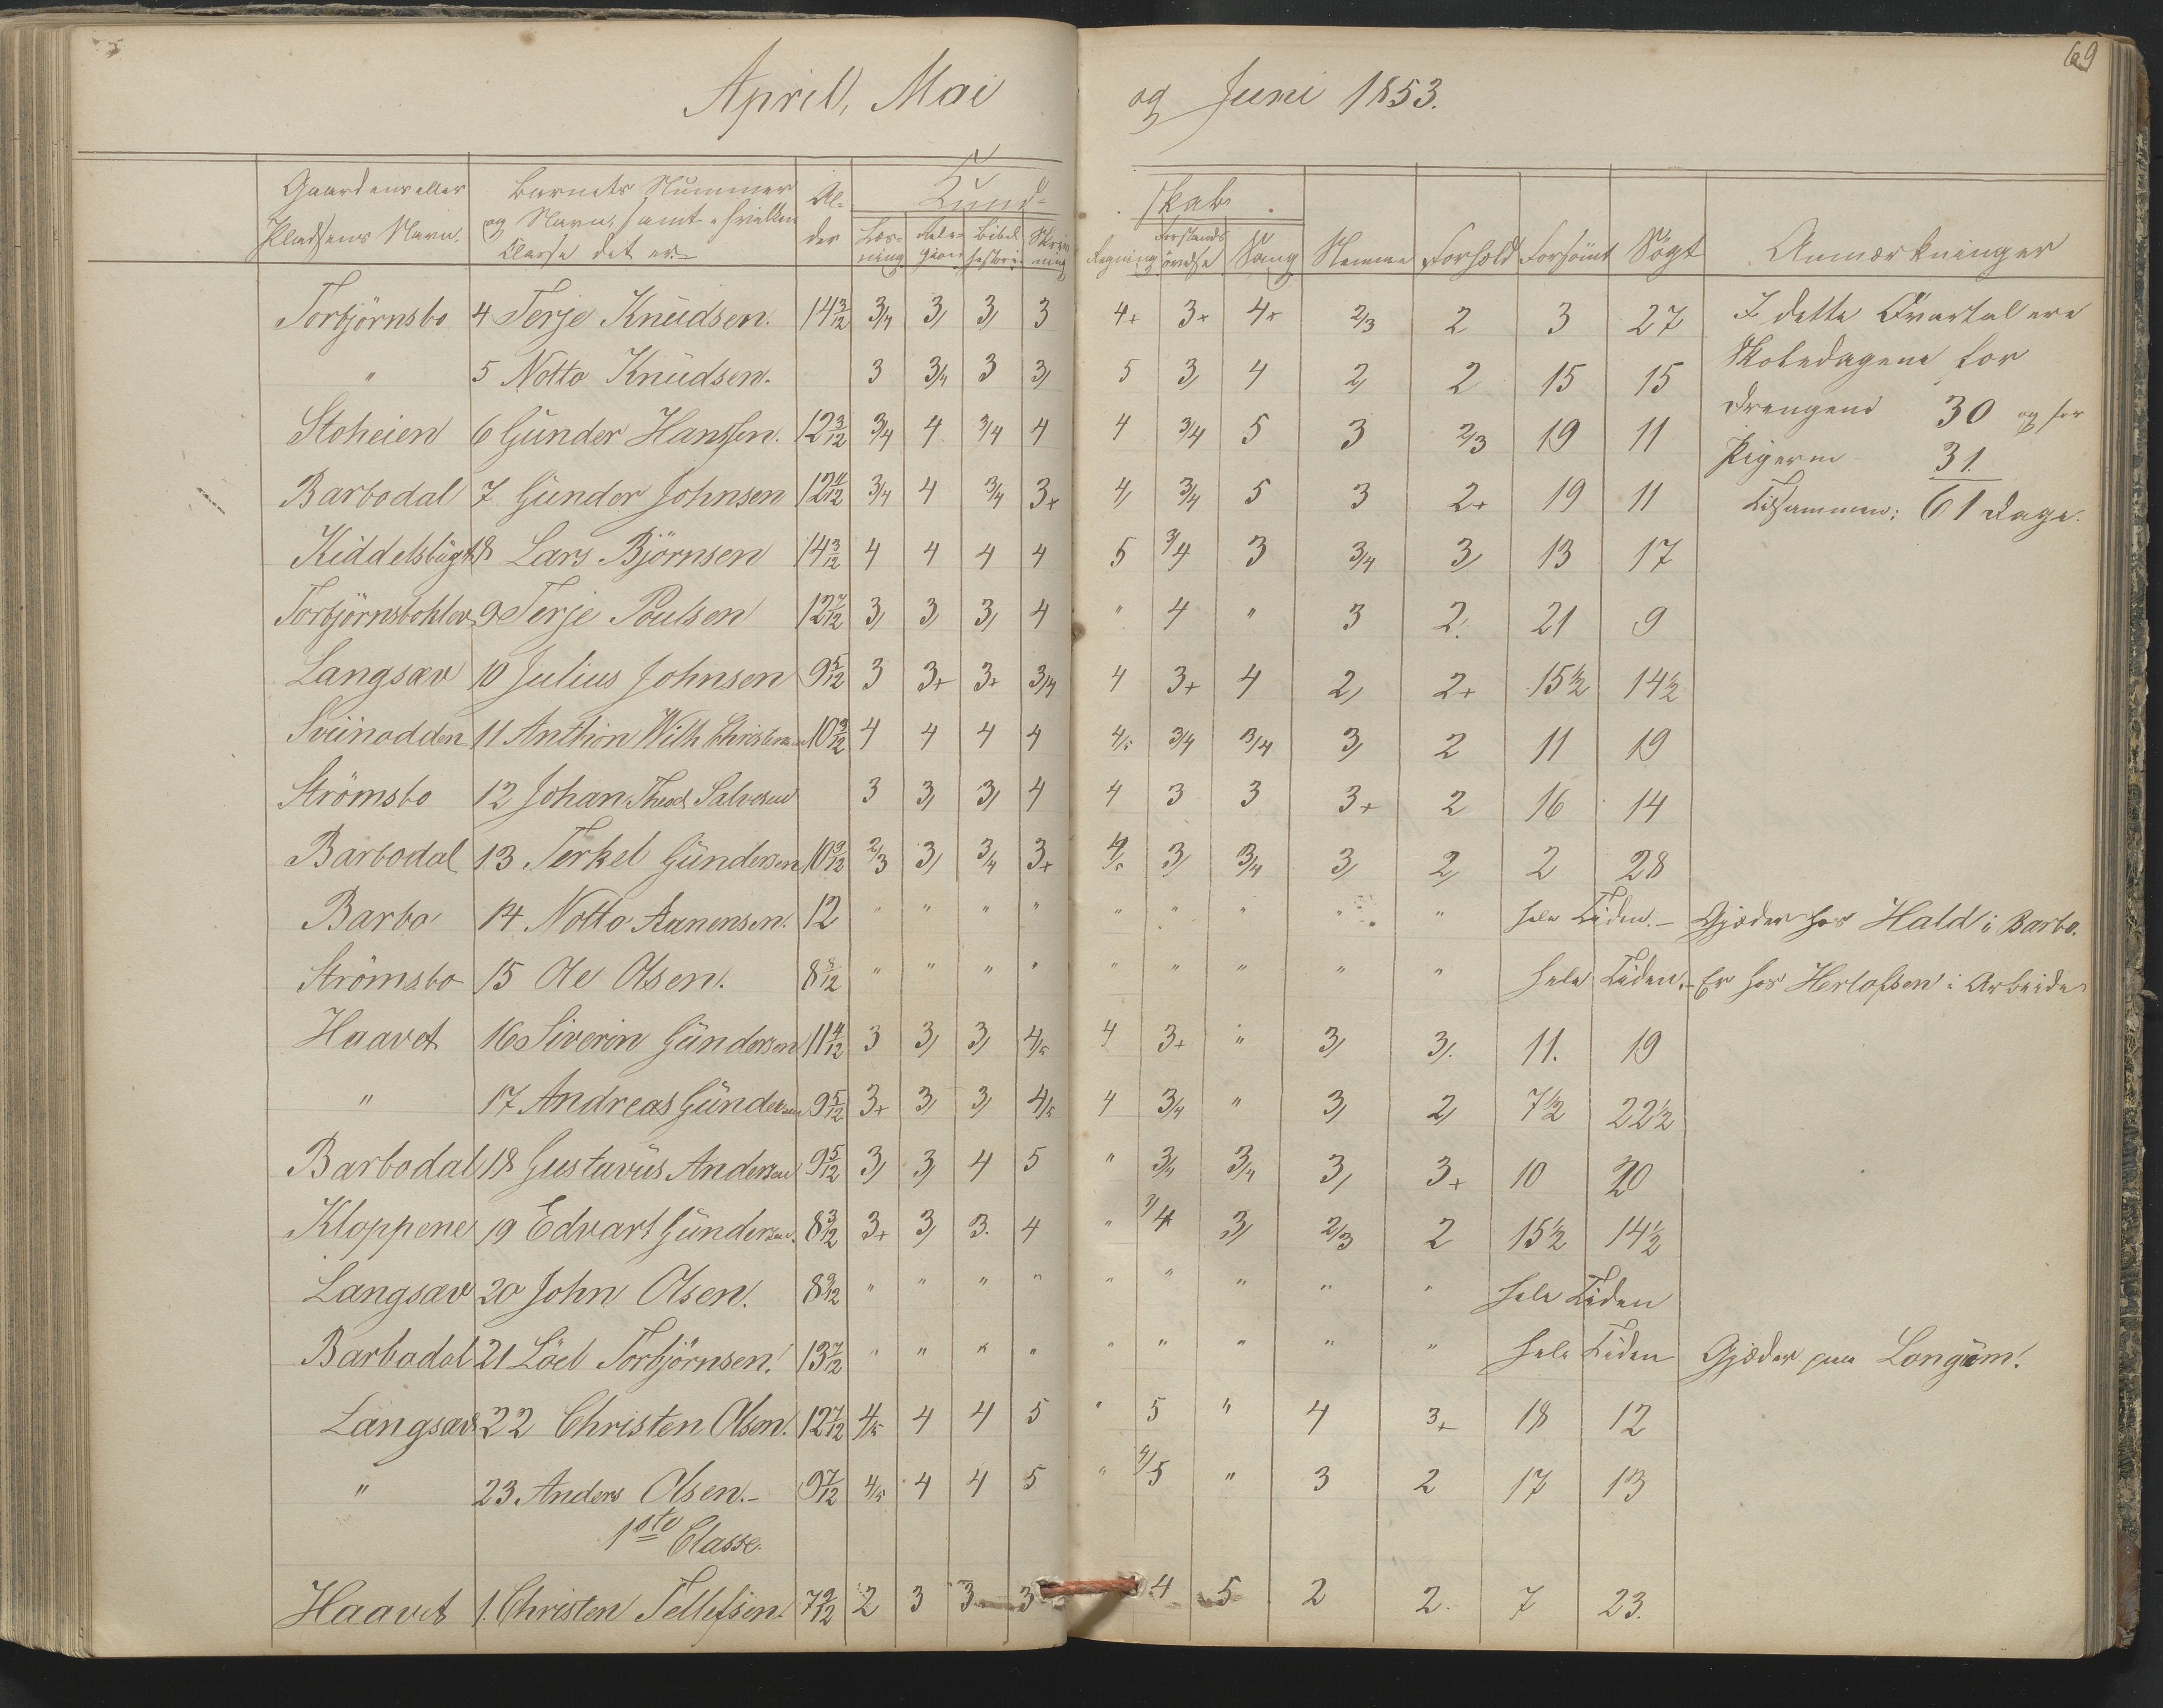 69
April, Mai og Juni 1853.
Gaardens eller Pladsens Navn. Barnets Nummer og Navn, samt i hvilken Classe det er. Al-der Kund-skab. Læs-ning Reli-gion Bibel historie Skriv-ning Regning Forstands övelse Sang Nemme Forhold Forsömt Sögt Anmærkninger
Torbjörnsbo 4 Terje Knüdsen. 14 3/12 3/4 3, 3, 3 4+ 3+ 4+ 2/3 2 3 27 I dette Qvartal ere
" 5 Notto Knüdsen. 3 3/4 3 3, 5 3, 4 2, 2 15 15 Skoledagene for
Stoheien 6 Günder Hanssen. 12 3/12 3/4 4 3/4 4 4 3/4 5 3 2/3 19 11 Drengene 30 og for
Barbodal 7 Gunder Johnsen 12 4/12 3/4 4 3/4 3+ 4, 3/4 5 3 2+ 19 11 Pigerne 31.
Tilsammen: 61 Dage.
Kiddelsbügt 8 Lars Björnsen 14 3/12 4 4 4 4 5 3/4 3 3/4 3, 13 17
Torbjörnsbohlen 9 Terje Poulsen 12 7/12 3, 3, 3, 4 " 4 " 3 2. 21 9
Langsæv 10 Julius Johnsen 9 5/12 3 3+ 3+ 3/4 4 3+ 4 2, 2+ 15 1/2 14 1/2
Sviinodden 11 Anthon Wilh Christensen 10 3/12 4 4 4 4 4/5 3/4 3/4 3, 2 11 19
Strömsbo 12 Johan Theod Salvesen 3 3, 3, 4 4 3 3 3+ 2 16 14
Barbodal 13 Terkel Gündersen 10 9/12 2/3 3, 3/4 3+ 4/5 3, 3/4 3, 2, 2 28
Barbo 14 Notto Aanensen. 12 " " " " " " " " " hele Tiden. – Gjæder hos Hald i Barbo.
Strömsbo 15 Ole Olsen. 8 8/12 " " " " " " " " " hele Tiden. – Er hos Herlofsen i Arbeide
Haavet 16 Siverin Gündersen 11 4/12 3 3, 3, 4/5 4 3+ " 3, 3, 11. 19
" 17 Andreas Gündersen 9 5/12 3+ 3, 3, 4/5 4 3/4 " 3, 2, 7 1/2 22 1/2
Barbodal 18 Gustavüs Andersen 9 5/12 3, 3, 4 5 " 3/4 3/4 3, 3+ 10 20
Kloppene 19 Edvart Gündersen. 8 3/12 3+ 3, 3. 4 " 3/4 3, 2/3 2 15 1/2 14 1/2
Langsæv 20 John Olsen. 8 9/12 " " " " " " " " " hele Tiden
Barbodal 21 Löel Torbjörnsen. 13 7/12 " " " " " " " " " hele Tiden Gjæder paa Longüm.
Langsæv 22 Christen Olsen. 12 7/12 4/5 4 4 5 " 5 " 4 3+ 18 12
" 23 Anders Olsen. – 9 7/12 4/5 4 4 5 " 4/5 " 3 2 17 13
1ste Classe.
Haavet 1. Christen Tellefsen. 7 9/12 2 3 3 3 4 5 2 2. 7 23.